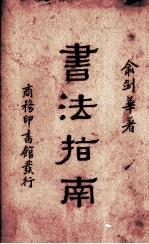 俞劍華著
書法指南
商務印書館發行